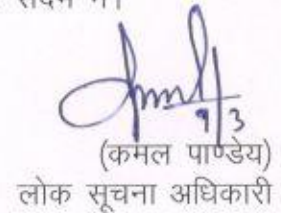 9/3
(कमल पाण्डेय)
लोक सूचना अधिकारी